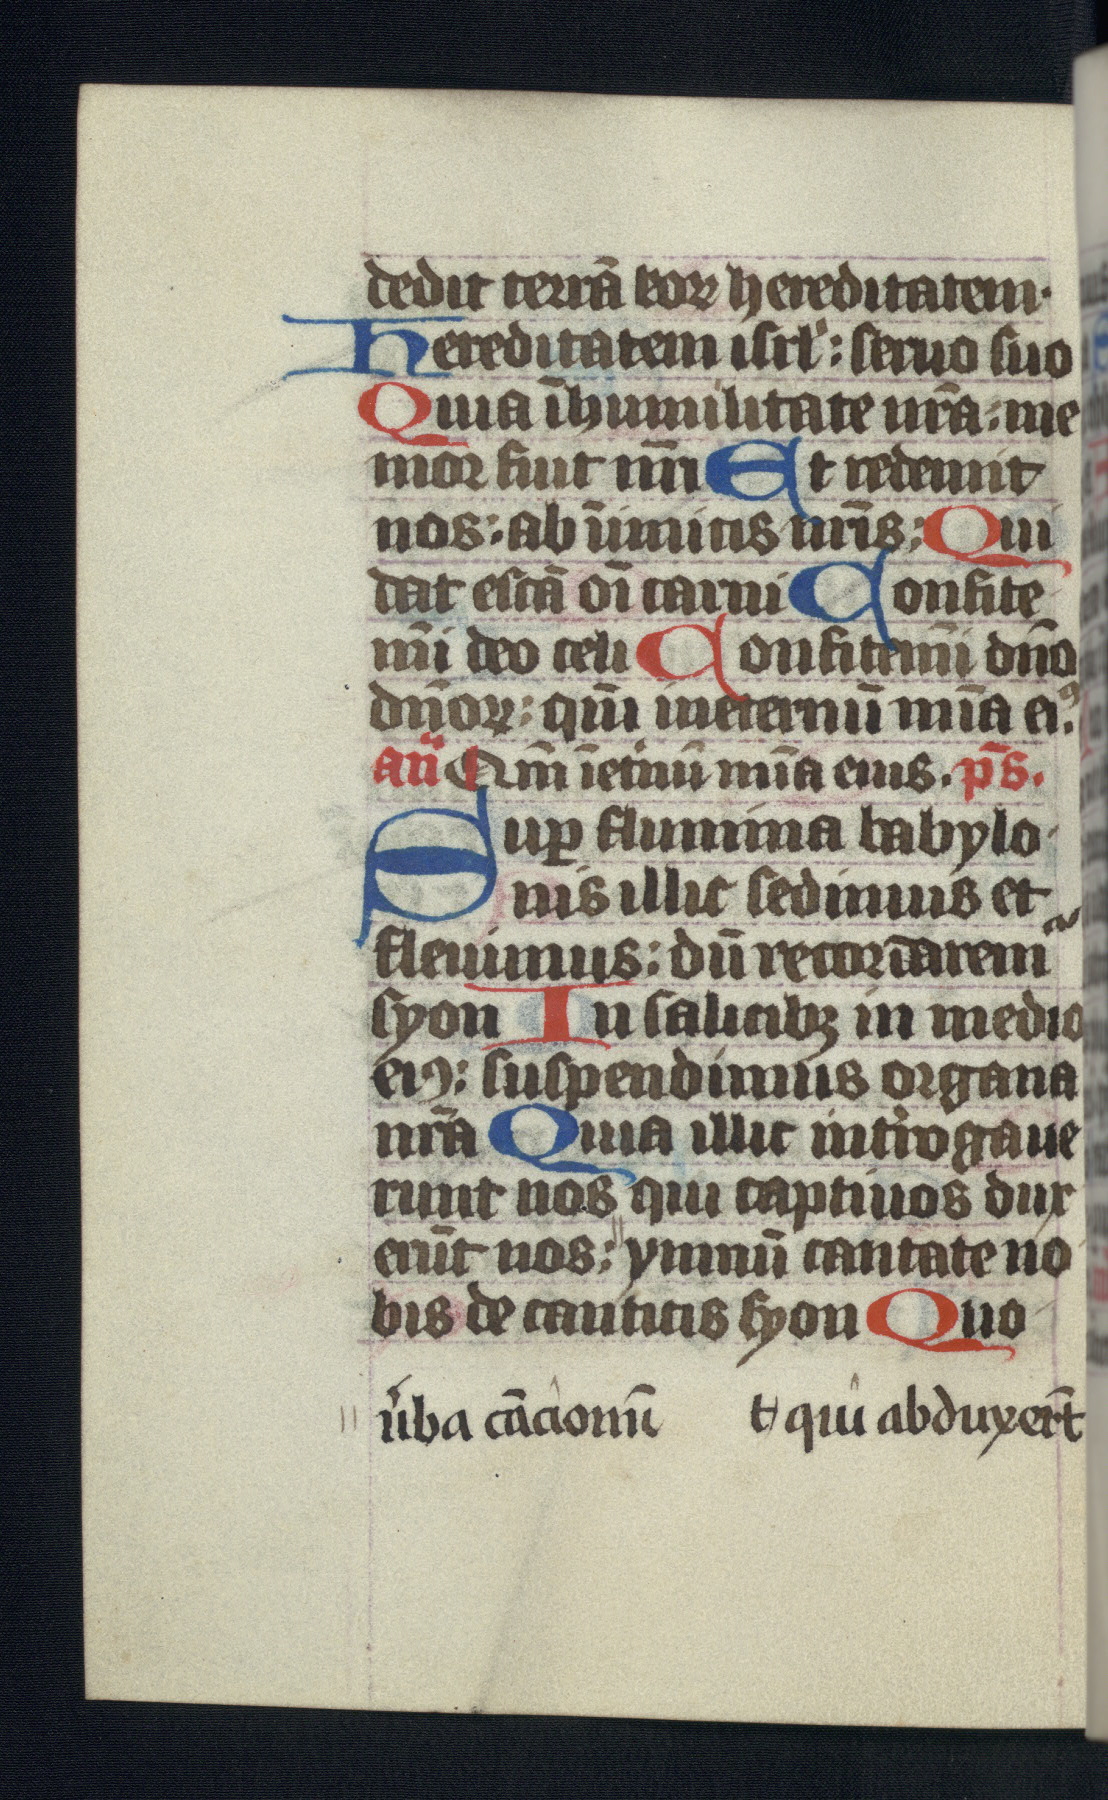 dedit terrā eoꝝ hereditatem·
hereditatem isrl': seruo suo
Quia ī humilitate nr̄a: me
mor fuit nr̄i Et redemit
nos: ab inimicis nr̄is: Qui
dat escā oī carni Confite
mī deo celi Confitemī dn̄o
dn̄oꝝ: qm̄ ineternū mīa eiꝰ
an̄ Qm̄ īet'nū mīa eius. p̄s.
Sup̄ flumina babylo
nis illic sedimus et
fleuimus: dū recordarem
syon In salicibꝫ in medio
eiꝰ: suspendimus organa
nr̄a Quia illic int'rogaue
runt nos qui captiuos dux
erūt nos: ymnū cantate no
bis de canticis syon Quo
u'ba cācionū ł qui abduxer̄t